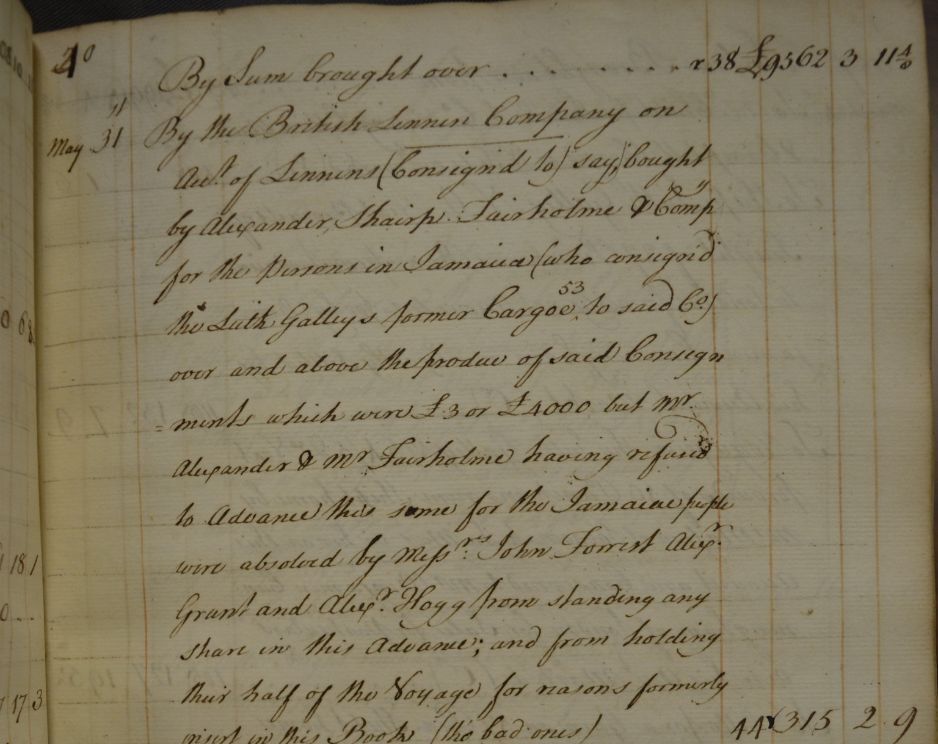 40
By Sum brought over . . . . . . . . 38 £9562 3 11 4/6
May 31 By the British Linnen Company on
Acct. of Linnens (Consign'd to) say, bought
by Alexander, Shairp. Fairholme & Comp
for the Persons in Jamaica (who consign'd
the Leith Galleys former Cargoe 53 to said Co.)
over and above the produce of said Consign
=ments which were £3 or £4000 but Mr.
Alexander & Mr Fairholme having refused
to Advance this some for the Jamaica people
were absolved by Messrs. John Forrest Alexr.
Grant and Alexr. Hogg from standing any
share in this Advance; and from holding
their half of the Voyage for reasons formerly
insert in this Book (tho bad ones) 44 315 2 9
0 6 8
18 1
0
17 3